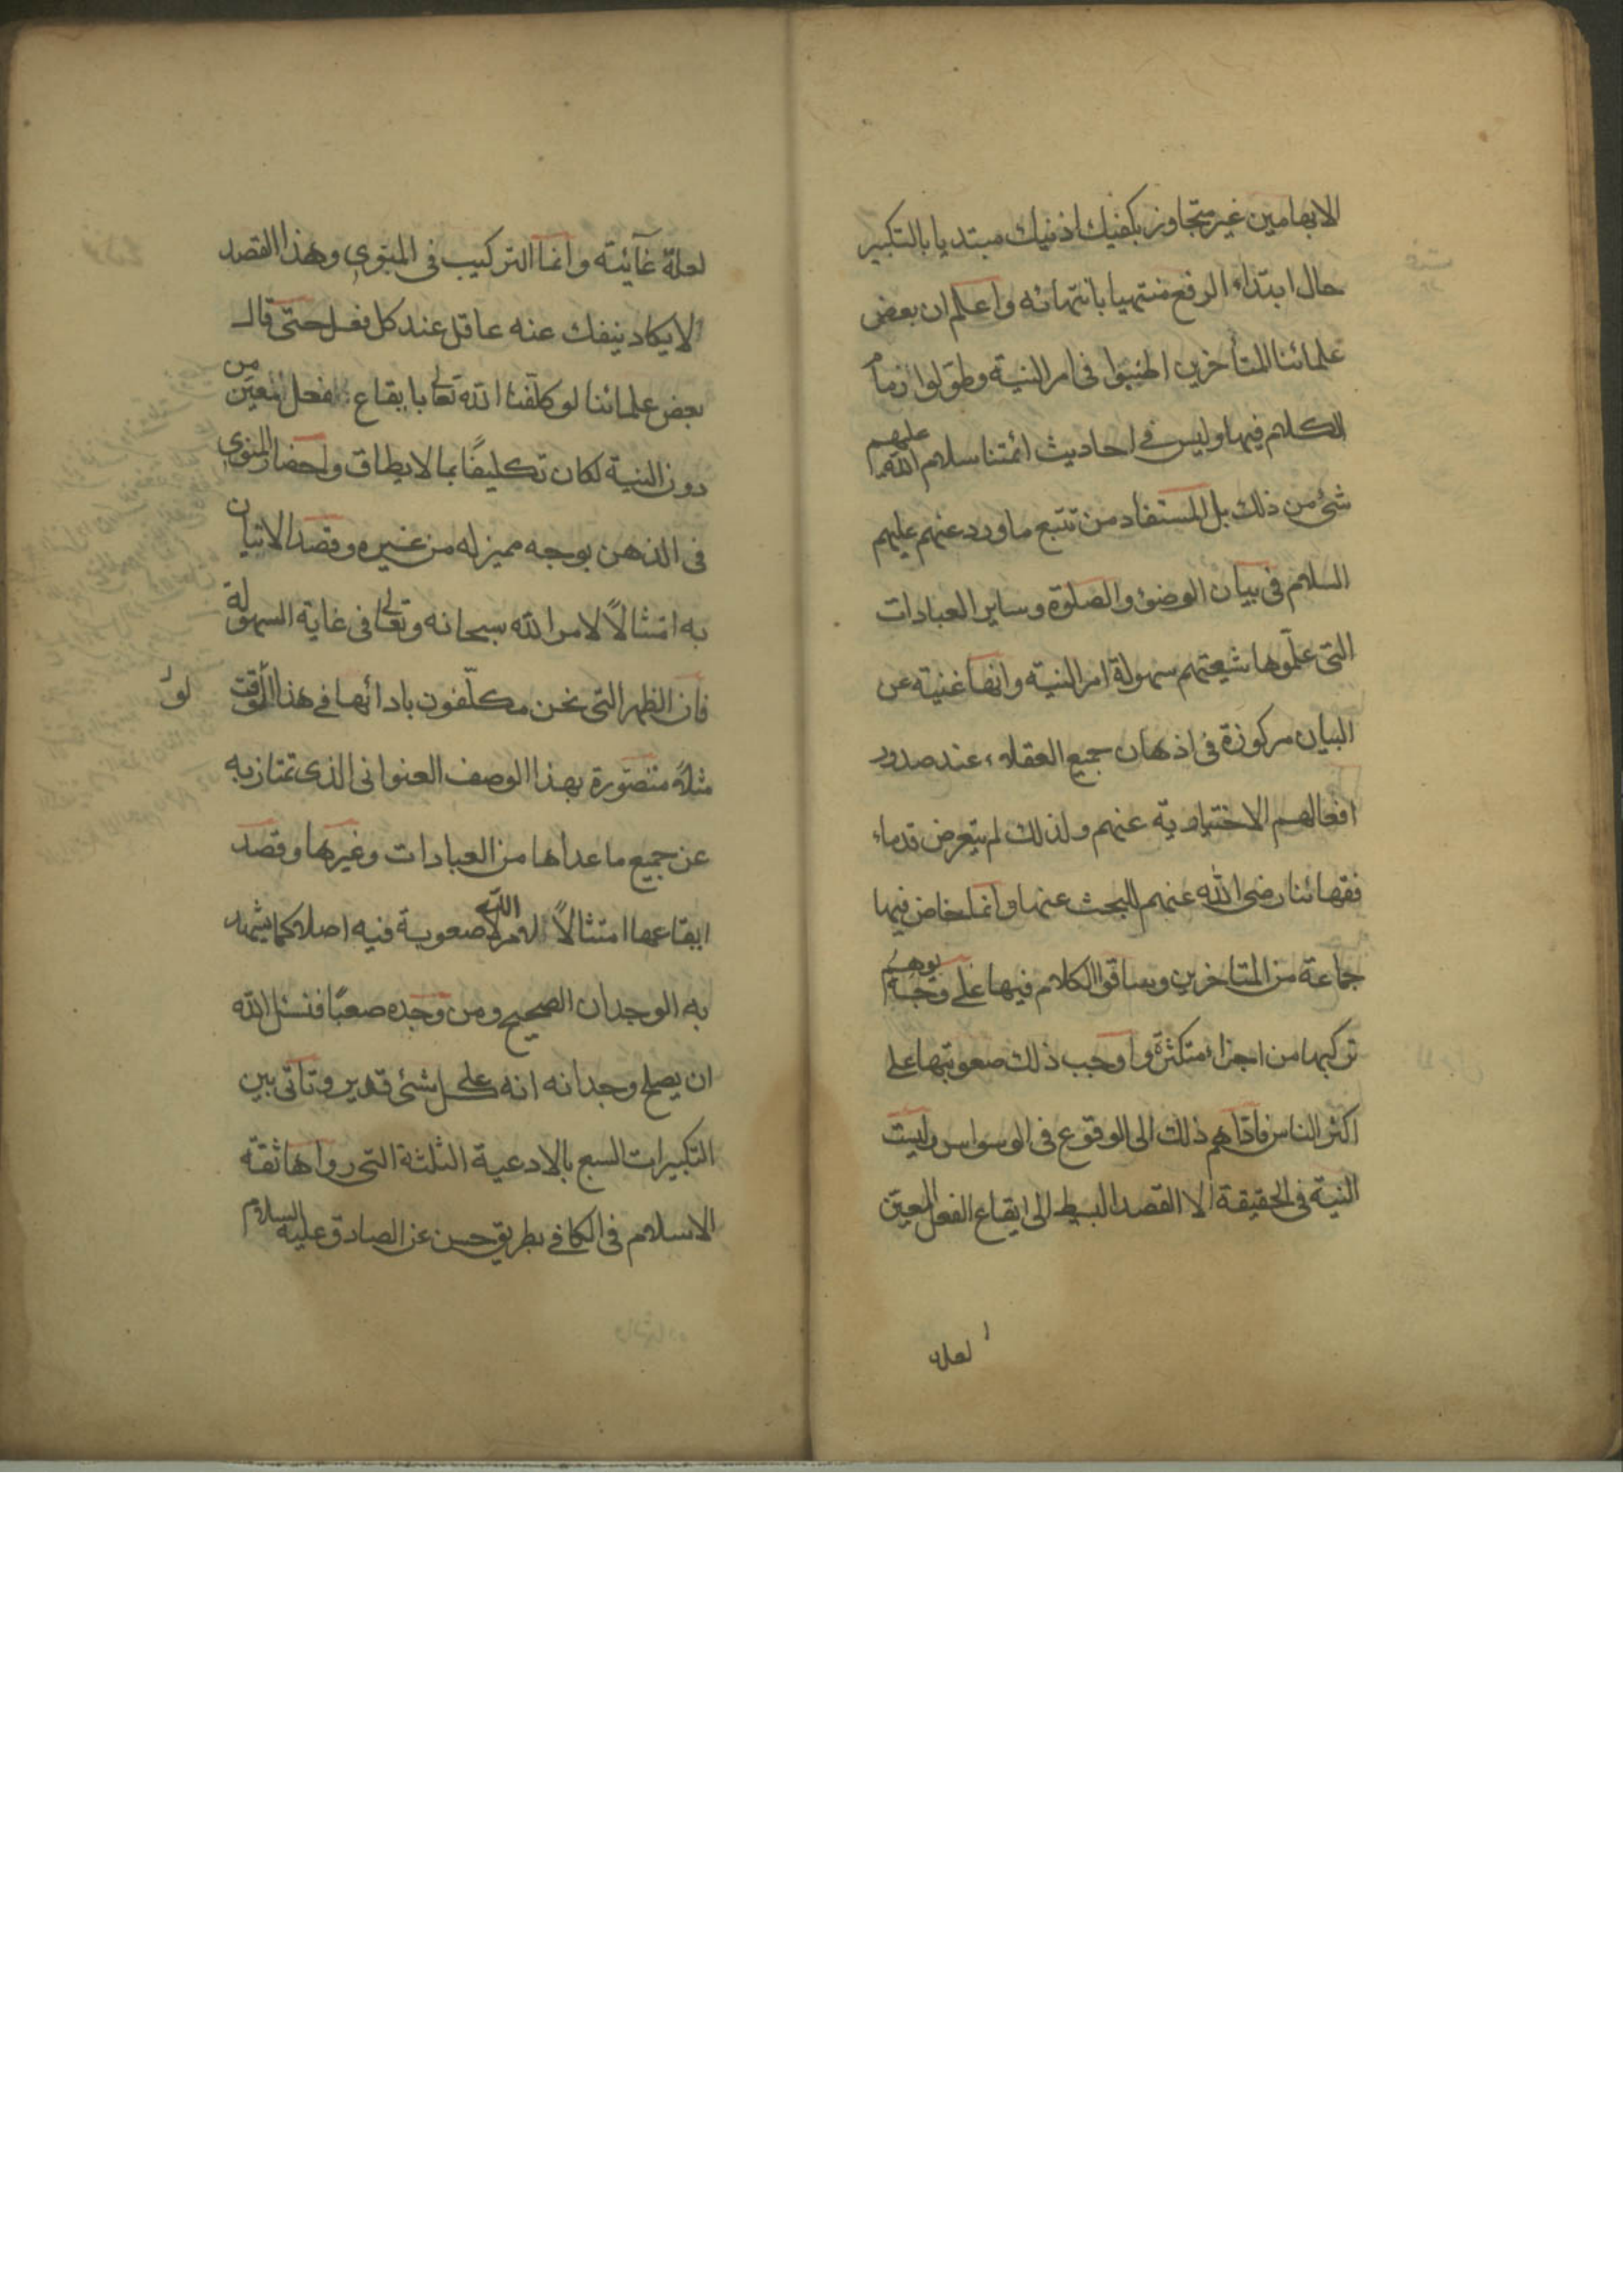 الابهامين غير متجاوز بكفيك اذنيك مبتديا بالتكبير
حال ابتداء الرفع منتهيا بانتهائه واعلم ان بعض
علمائنا المتأخرين اطنبوا في امر النية وطولوا زمام
الكلام فيها وليس في احاديث ائمتنا سلام الله عليهم
شئ من ذلك بل المستفاد من تتبع ما ورد عنهم عليهم
السلام في بيان الوضوء والصلوة وساير العبادات
التي علموها شيعتهم سهولة امر النية وانها غنية عن
البيان مركوزة في اذهان جميع العقلاء عند صدور
افعالهم الاختيارية عنهم ولذلك لم يتعرض قدماء
فقهائنا رضي الله عنهم للبحث عنها وانما خاض فيها
جماعة من المتاخرين وساقوا الكلام فيها على وجه يوهم
تركبها من اجزاء متكثرة واوجب ذلك صعوبتها على
اكثر الناس فاداهم ذلك الى الوقوع في الوسواس وليست
النية في الحقيقة الا القصد البسيط الى ايقاع الفعل المعين
لعلة
لعلة غائية وانما التركيب في المنوى وهذا القصد
لا يكاد ينفك عنه عاقل عند كل فعل حتى قال
بعض علمائنا لو كلفنا الله تعالى بايقاع فعل معين من
دون النية لكان تكليفًا بما لا يطاق واحضار المنوى
في الذهن بوجه مميز له من غيره وقصد الاتيان
به امتثالاً لامر الله سبحانه وتعالى في غاية السهولة
فان الظهر التي نحن مكلفون بادائها في هذا الوقت
مثلاً متصورة بهذا الوصف العنواني الذي تمتاز به
عن جميع ما عداها من العبادات وغيرها وقصد
ايقاعها امتثالاً لامر الله لا صعوبة فيه اصلا كما يشهد
به الوجدان الصحيح ومن وجده صعبًا فنسئل الله
ان يصلح وجدانه انه على كل شئ قدير وتاتي بين
التكبيرات السبع بالادعية الثلثة التي رواها ثقة
الاسلام في الكافي بطريق حسن عن الصادق عليه السلام